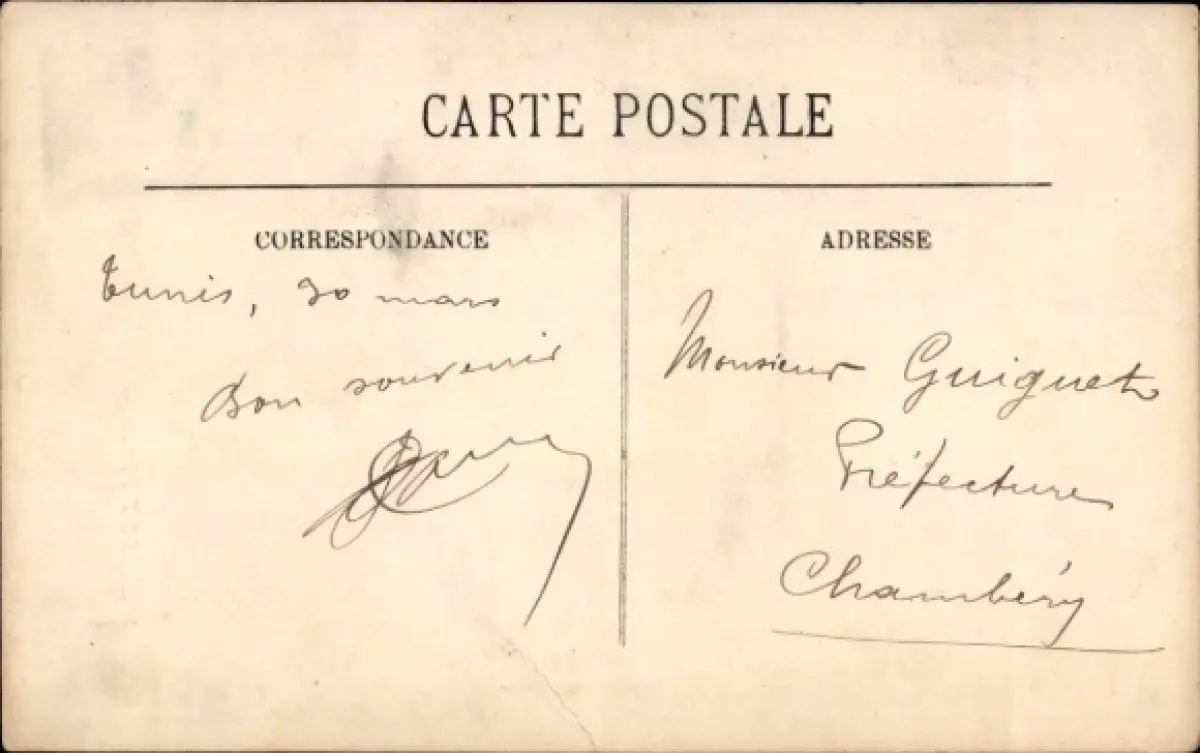 CARTE POSTALE
CORRESPONDANCE
Tunis, 30 mars
Bon souvenir
ADRESSE
Monsieur Guiguet
Préfecture
Chambéry